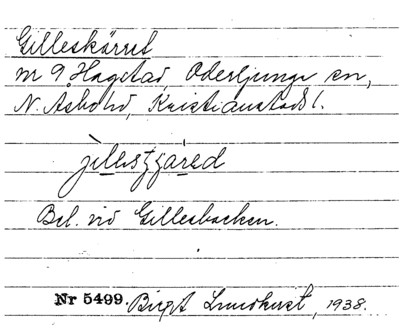 Gilleskärret
m 9 Hagstad Oderljunga sn,
N. Åsbo hd, Kristianstads l.
Bel. vid Gillesbacken.
Nr 5499. Birgit Lundkvist, 1938.